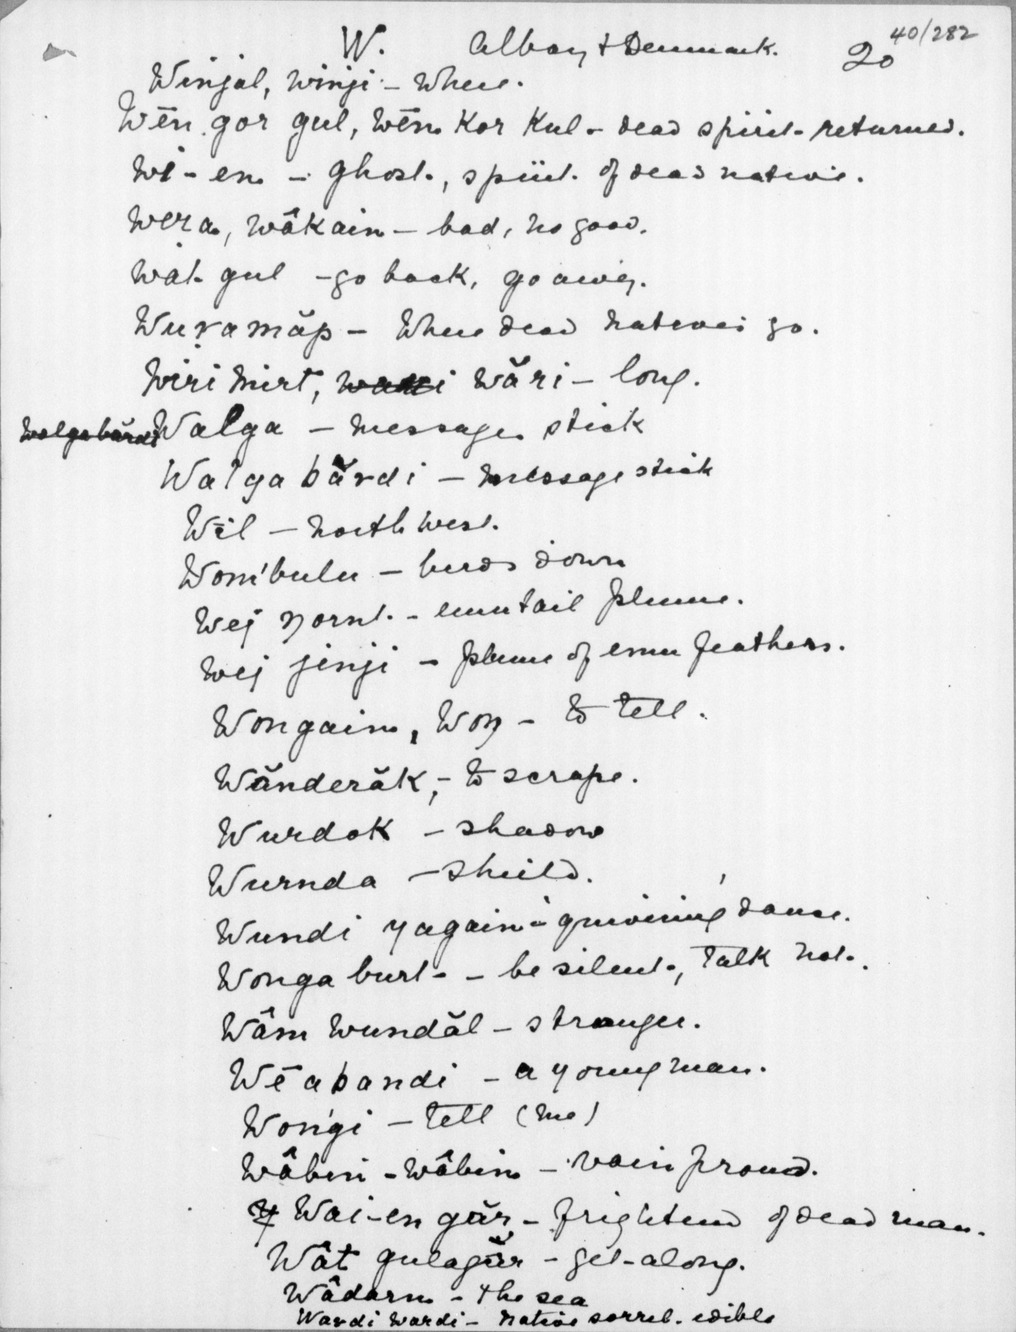 40/282
W. Albany & Denmark. 20
Winjal, winji - where.
Wēn gor gul, Wēn Kor Kul - dead spirit returned.
Wi-en - ghost, spirit of dead native.
Wera, wâkain - bad, no good.
Wat gul - go back, go away.
Wuramăp - Where dead natives go.
Wiri Wirt, wări - long.
Walga bărdi Walga - message stick
Walga bărdi - message stick
Wīl - north west.
Wom'bulu - birds down
Wej ŋornt - emu tail plume.
Wej jinji - plume of emu feathers.
Wongain, Woŋ - to tell.
Wănderăk, - to scrape.
Wurdok - shadow
Wurnda - shield.
Wundi yagain - quivering dance.
Wonga burt - be silent, talk not.
Wâm wundăl - stranger.
Wēabandi - a young man.
Wongi - tell (me)
Wâbin-wâbin - vain proud.
Wai-en găr - frightened of dead man.
Wât gulagăr - get along.
Wâdarn - the sea
Wardi wardi - native sorrel. edible